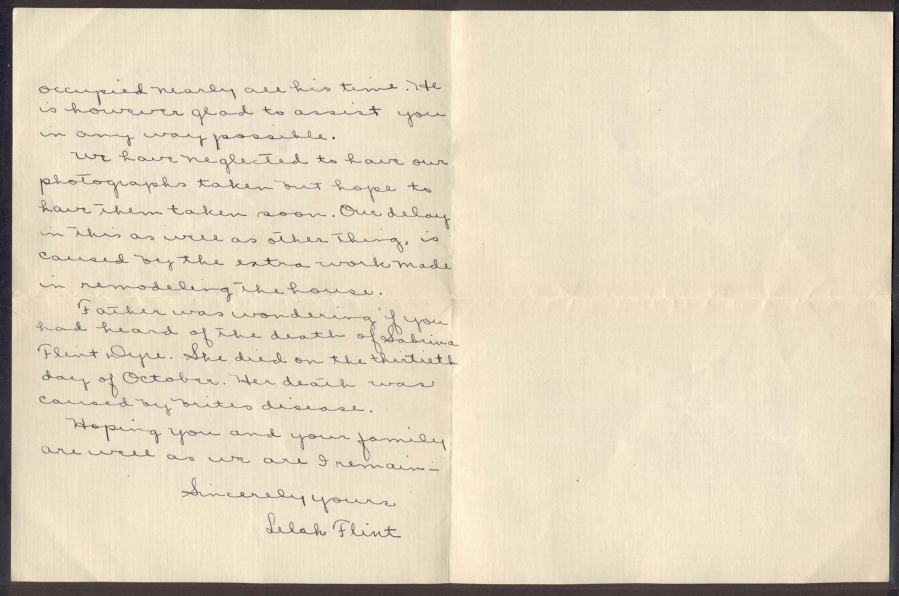 occupied nearly all his time. He
is however glad to assist you
in any way possible.
We have neglected to have our
photographs taken but hope to
have them taken soon. Our delay
in this as well as other thing, is
caused by the extra work made
in remodeling the house.
Father was wondering if you
had heard of the death of Sabrina
Flint Dype. She died on the thirtieth
day of October. Her death was
caused by brites disease.
Hoping you and your family
are well as we are I remain—
Sincerely yours
Lelah Flint